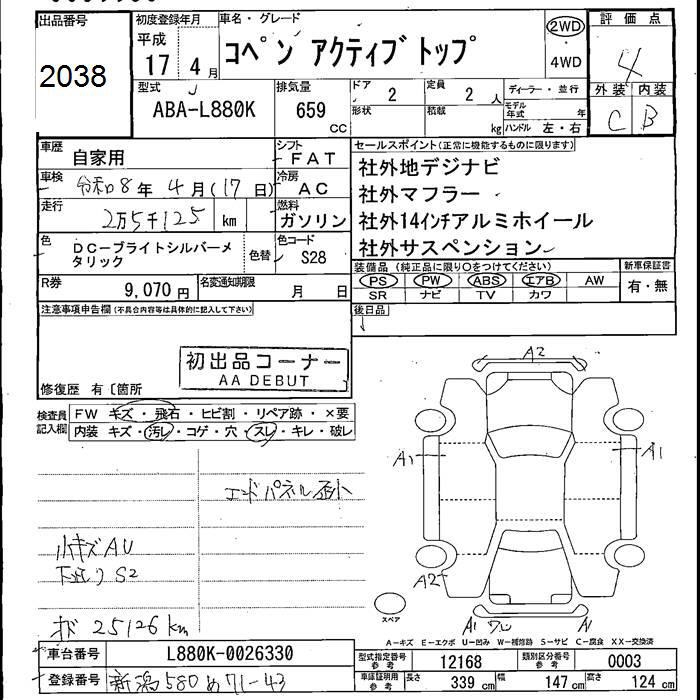 出品番号
2038
初度登録年月
平成
17年 4月
車名・グレード
コペン アクティブトップ
2WD
4WD
評価点
4
外装 内装
C B
型式
ABA-L880K
排気量
659
CC
ドア
2
形状
定員
2 人
積載
kg
ディーラー・並行
モデル年式 年
ハンドル 左・右
車歴
自家用
シフト
FAT
車検
令和8年 4月(17日)
冷房
AC
走行
2万5千125 km
燃料
ガソリン
色
DC-ブライトシルバーメ
タリック
色替
色コード
S28
R券
9,070円
名変通知期限
月 日
セールスポイント(正常に機能するものに限ります)
社外地デジナビ
社外マフラー
社外14インチアルミホイール
社外サスペンション
装備品 (純正品に限り○をつけてください)
PS PW ABS エアB AW
SR ナビ TV カワ
新車保証書
有・無
後日品
注意事項申告欄(不具合内容等は具体的に記入して下さい)
初出品コーナー
AA DEBUT
修復歴 有〔箇所
検査員
記入欄
FW キズ・飛石・ヒビ割・リペア跡・×要
内装 キズ・汚レ・コゲ・穴・スレ・キレ・破レ
エンドパネル歪小
小キズAU
下廻りS2
オド 25126km
A2
A1
A1
A2
A1
A1
スペア
A-キズ E-エクボ U-凹み W-補修跡 S-サビ C-腐食 XX-交換済
車台番号
L880K-0026330
登録番号
新潟580め71-43
型式指定番号
参考
12168
類別区分番号
参考
0003
車庫証明用
参考
長さ 339cm
幅 147cm
高さ 124cm